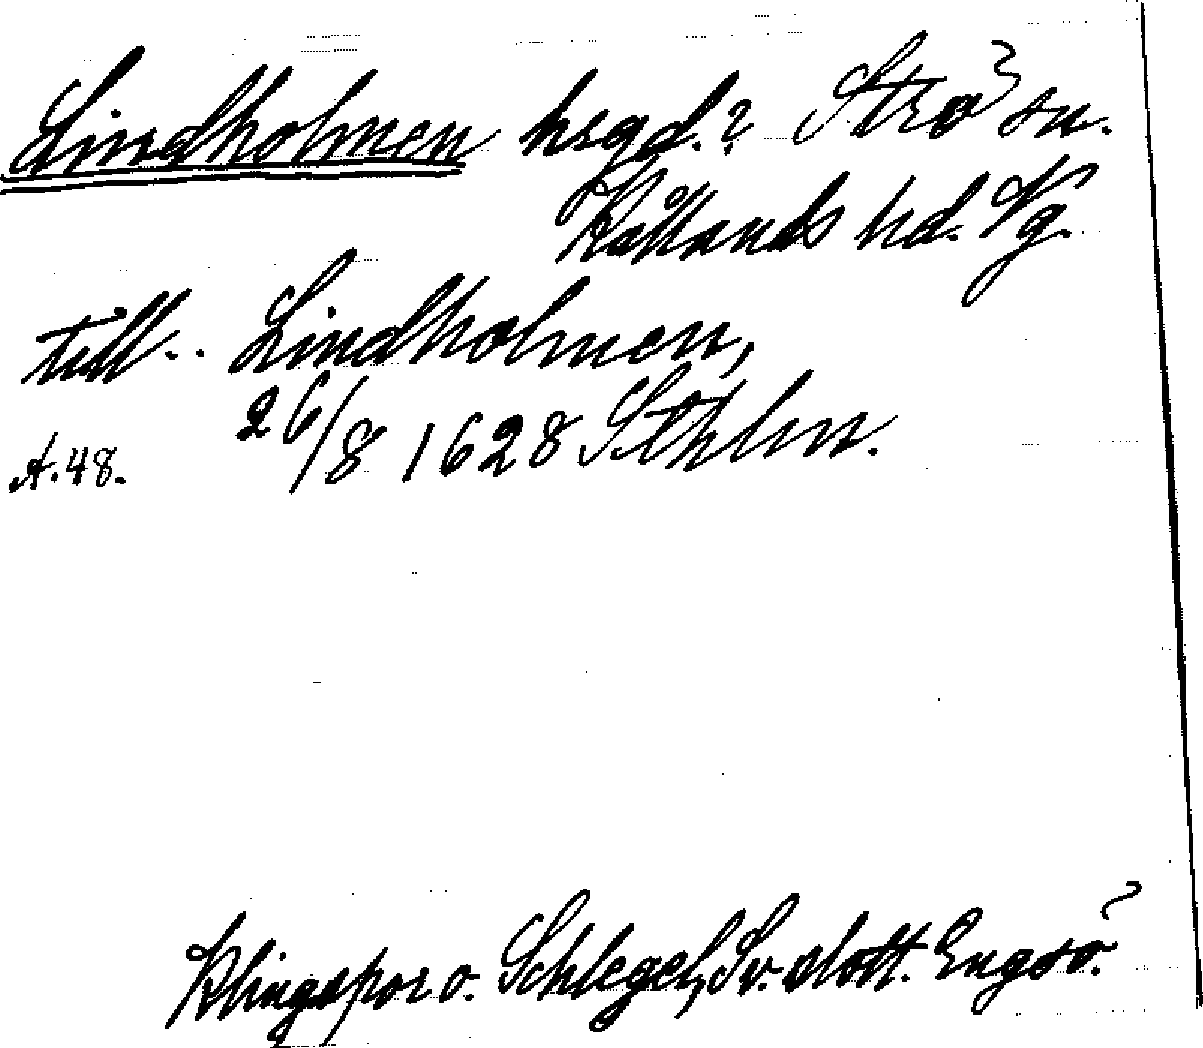 Lindholmen hsgd.? Strö sn.
Kållands hd. Vg.
till.. Lindholmen,
26/8 1628 Sthlm.
A.48.
Klingspor o. Schlegel, Sv. slott. Engsö.